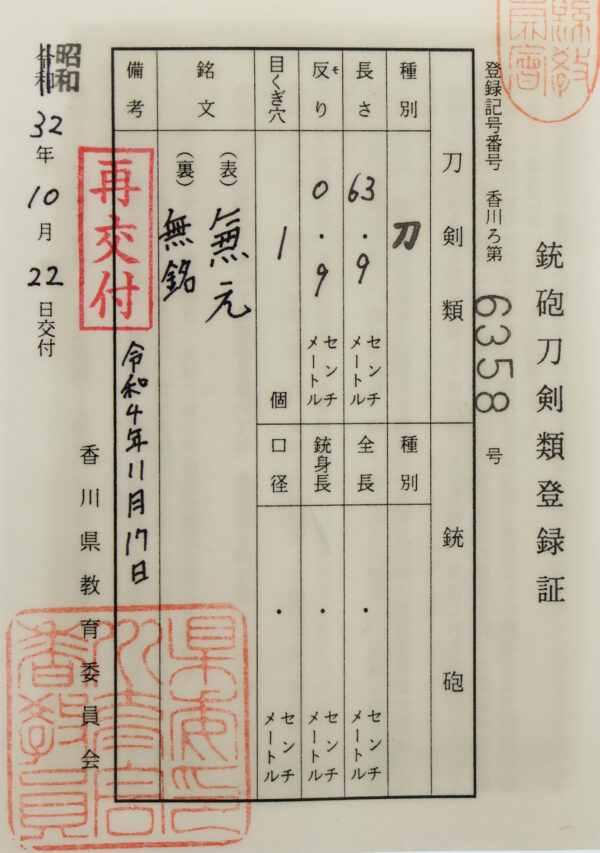 銃砲刀剣類登録証
登録記号番号 香川ろ第 6358 号
刀剣類
種別 刀
長さ 63.9 センチメートル
反り そ 0.9 センチメートル
目くぎ穴 1 個
銃砲
種別
全長 ・ センチメートル
銃身長 ・ センチメートル
口径 ・ センチメートル
銘文
(表) 兼元
(裏) 無銘
備考
再交付
令和4年11月17日
令和
昭和
32年10月22日交付
香川県教育委員会